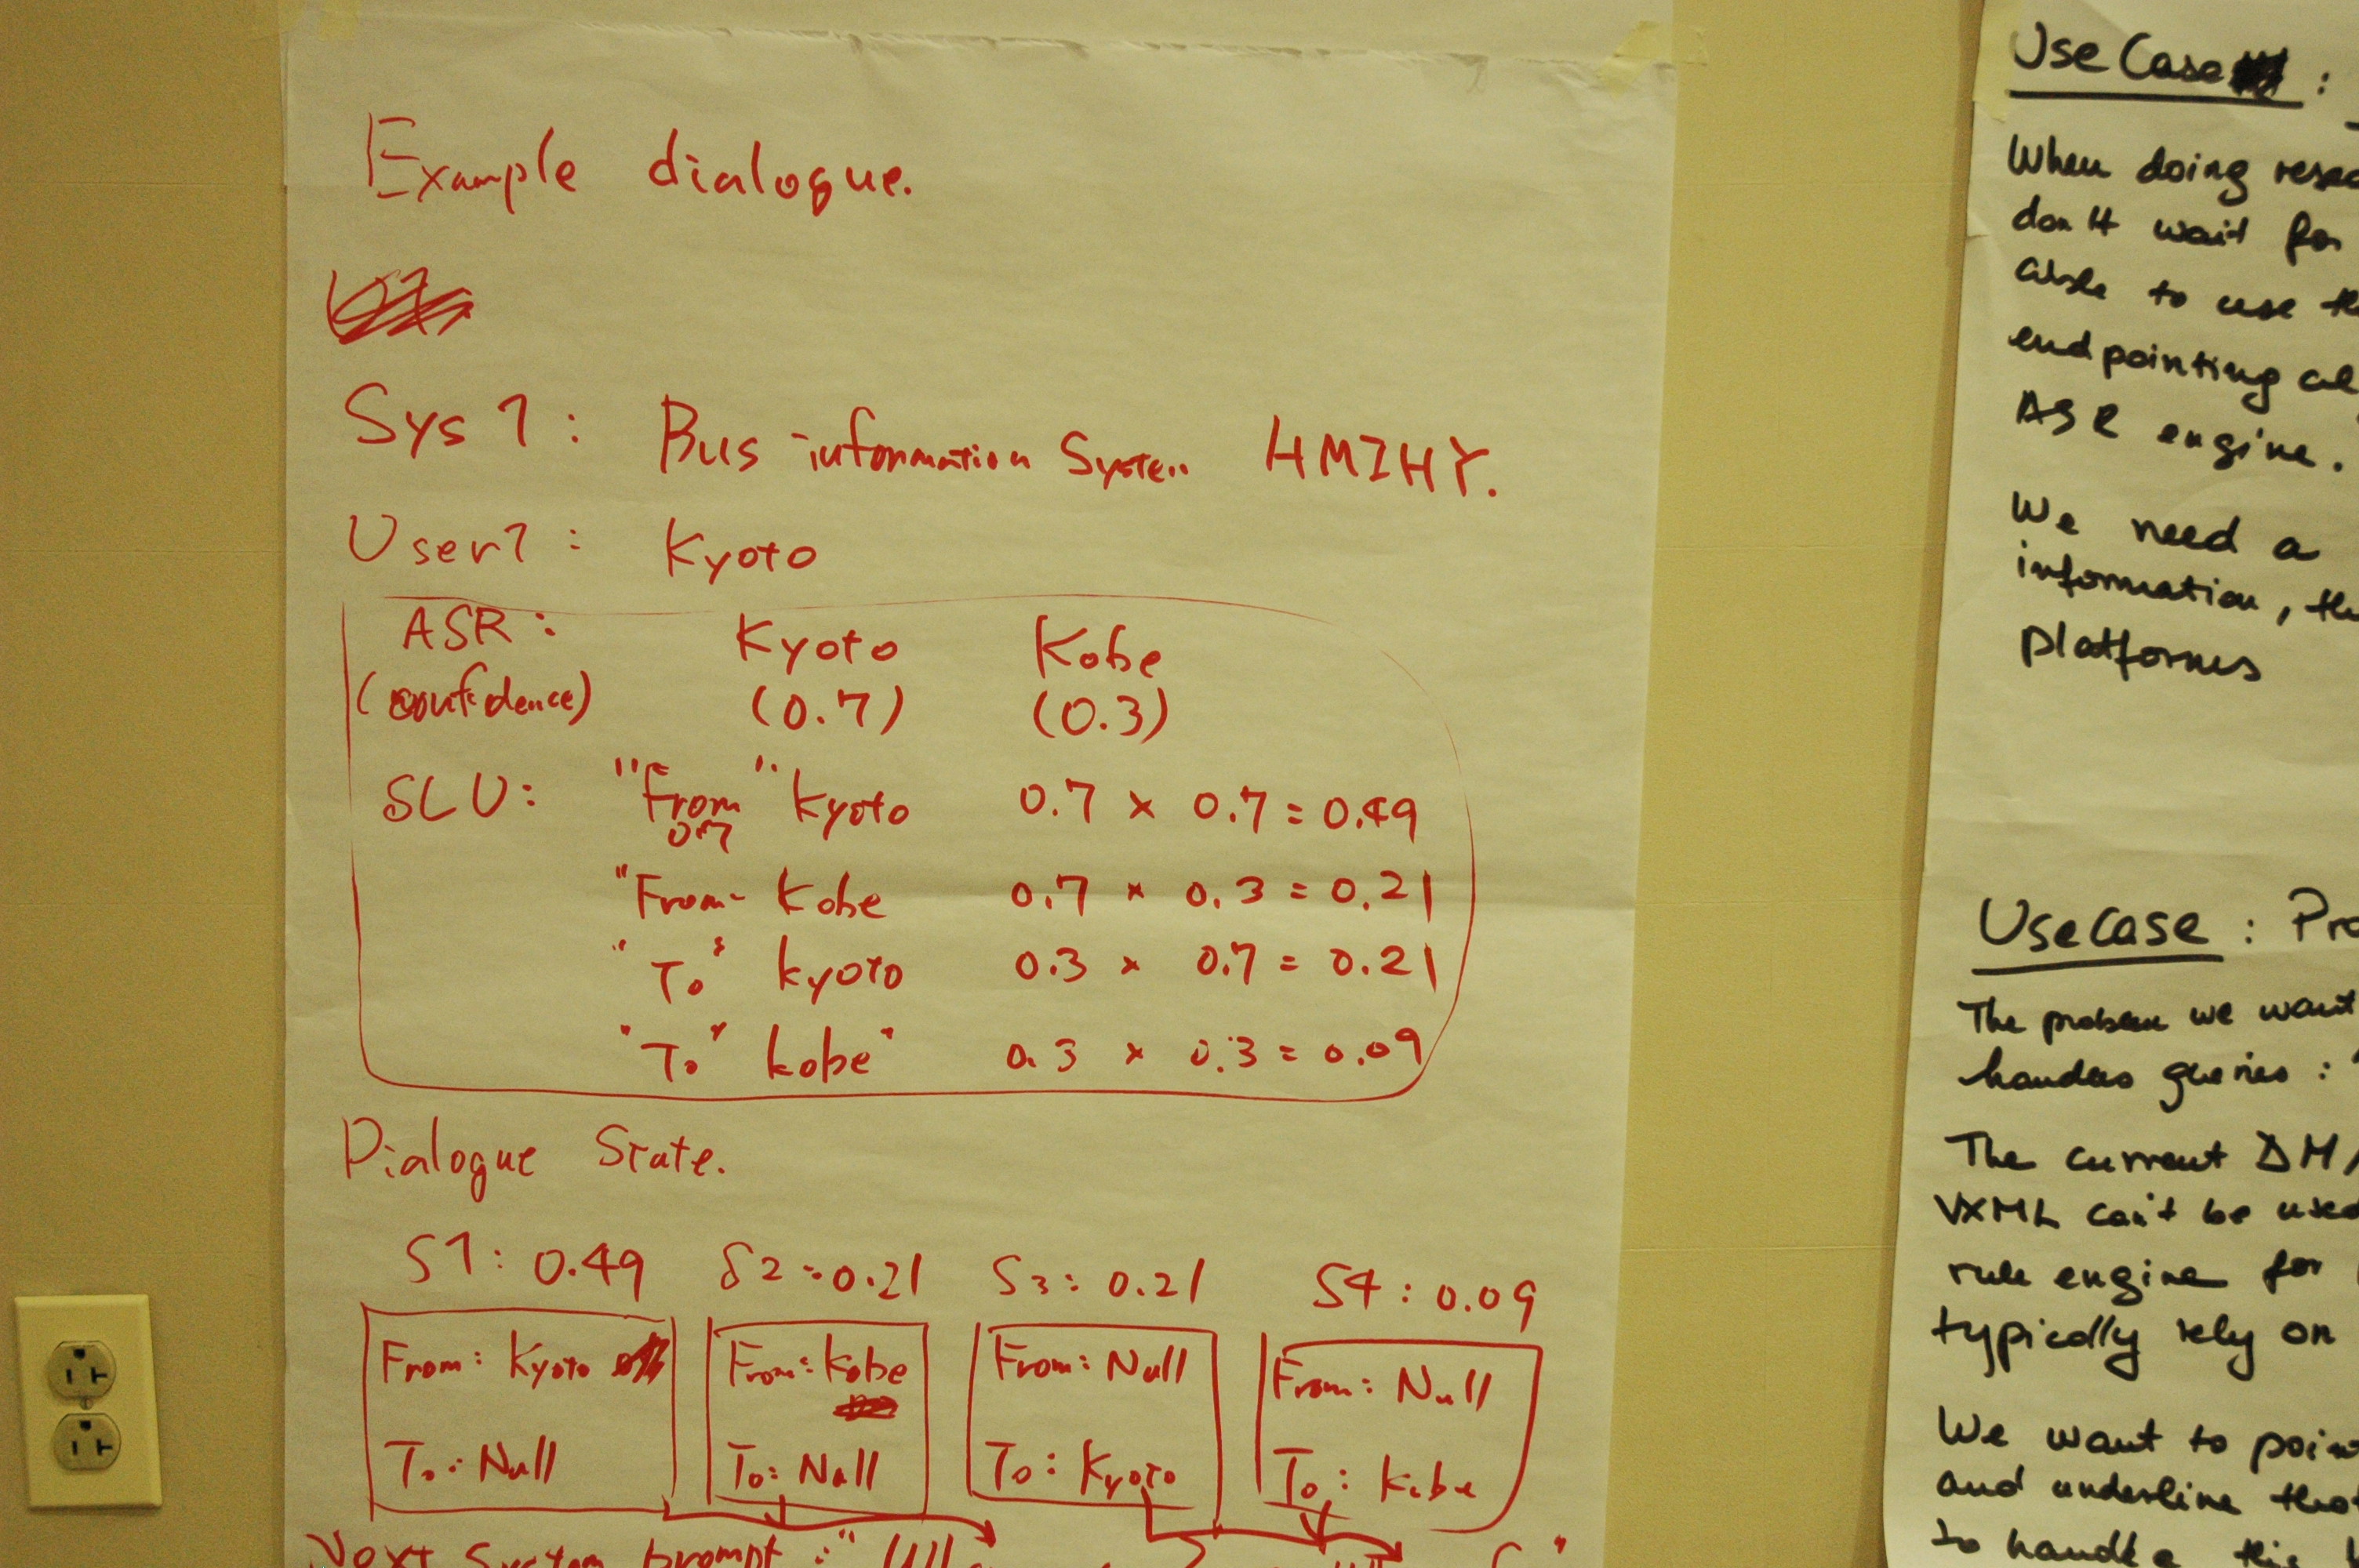 Example dialogue.
Sys 1: Bus information System HMIHY.
User1: Kyoto
ASR: Kyoto Kobe
(confidence) (0.7) (0.3)
SLU: "From" Kyoto 0.7 × 0.7 = 0.49
0.7
"From" Kobe 0.7 × 0.3 = 0.21
"To" Kyoto 0.3 × 0.7 = 0.21
"To" Kobe" 0.3 × 0.3 = 0.09
Dialogue State.
S1: 0.49 S2: 0.21 S3: 0.21 S4: 0.09
From: Kyoto
To: Null
From: Kobe
To: Null
From: Null
To: Kyoto
From: Null
To: Kobe
Next System prompt: "
Use Case :
When doing
don't wait for
able to use
endpointing
ASR engine.
We need a
information,
platforms
Use Case :
The problem we want
queries :
The current DM
VXML can't be
rule engine for
typically rely on
We want to
and underline
to handle